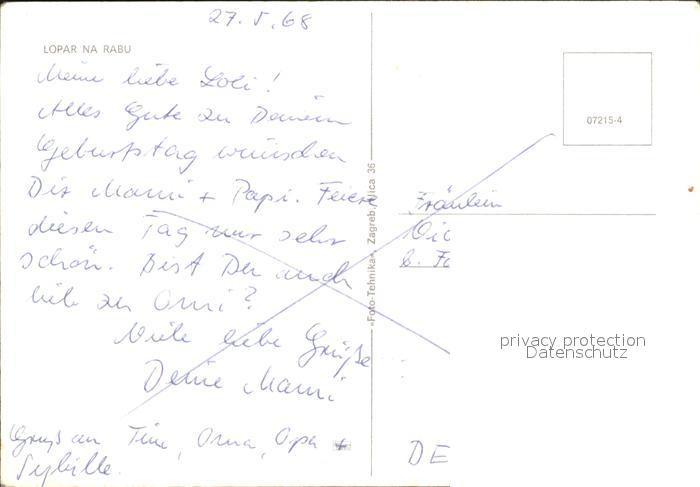 27. V. 68
LOPAR NA RABU
Meine liebe Loli!
Alles Gute zu Deinem
Geburtstag wünschen
Dir Mami + Papi. Feiere
diesen Tag nur sehr
schön. Bist Du auch
lieb zu Omi?
Viele liebe Grüße
Deine Mami
Gruß an Tine, Oma, Opa +
Sybille.
«Foto-Tehnika», Zagreb, Ilica 36
07215-4
Fräulein
b. Fa
DE
privacy protection
Datenschutz